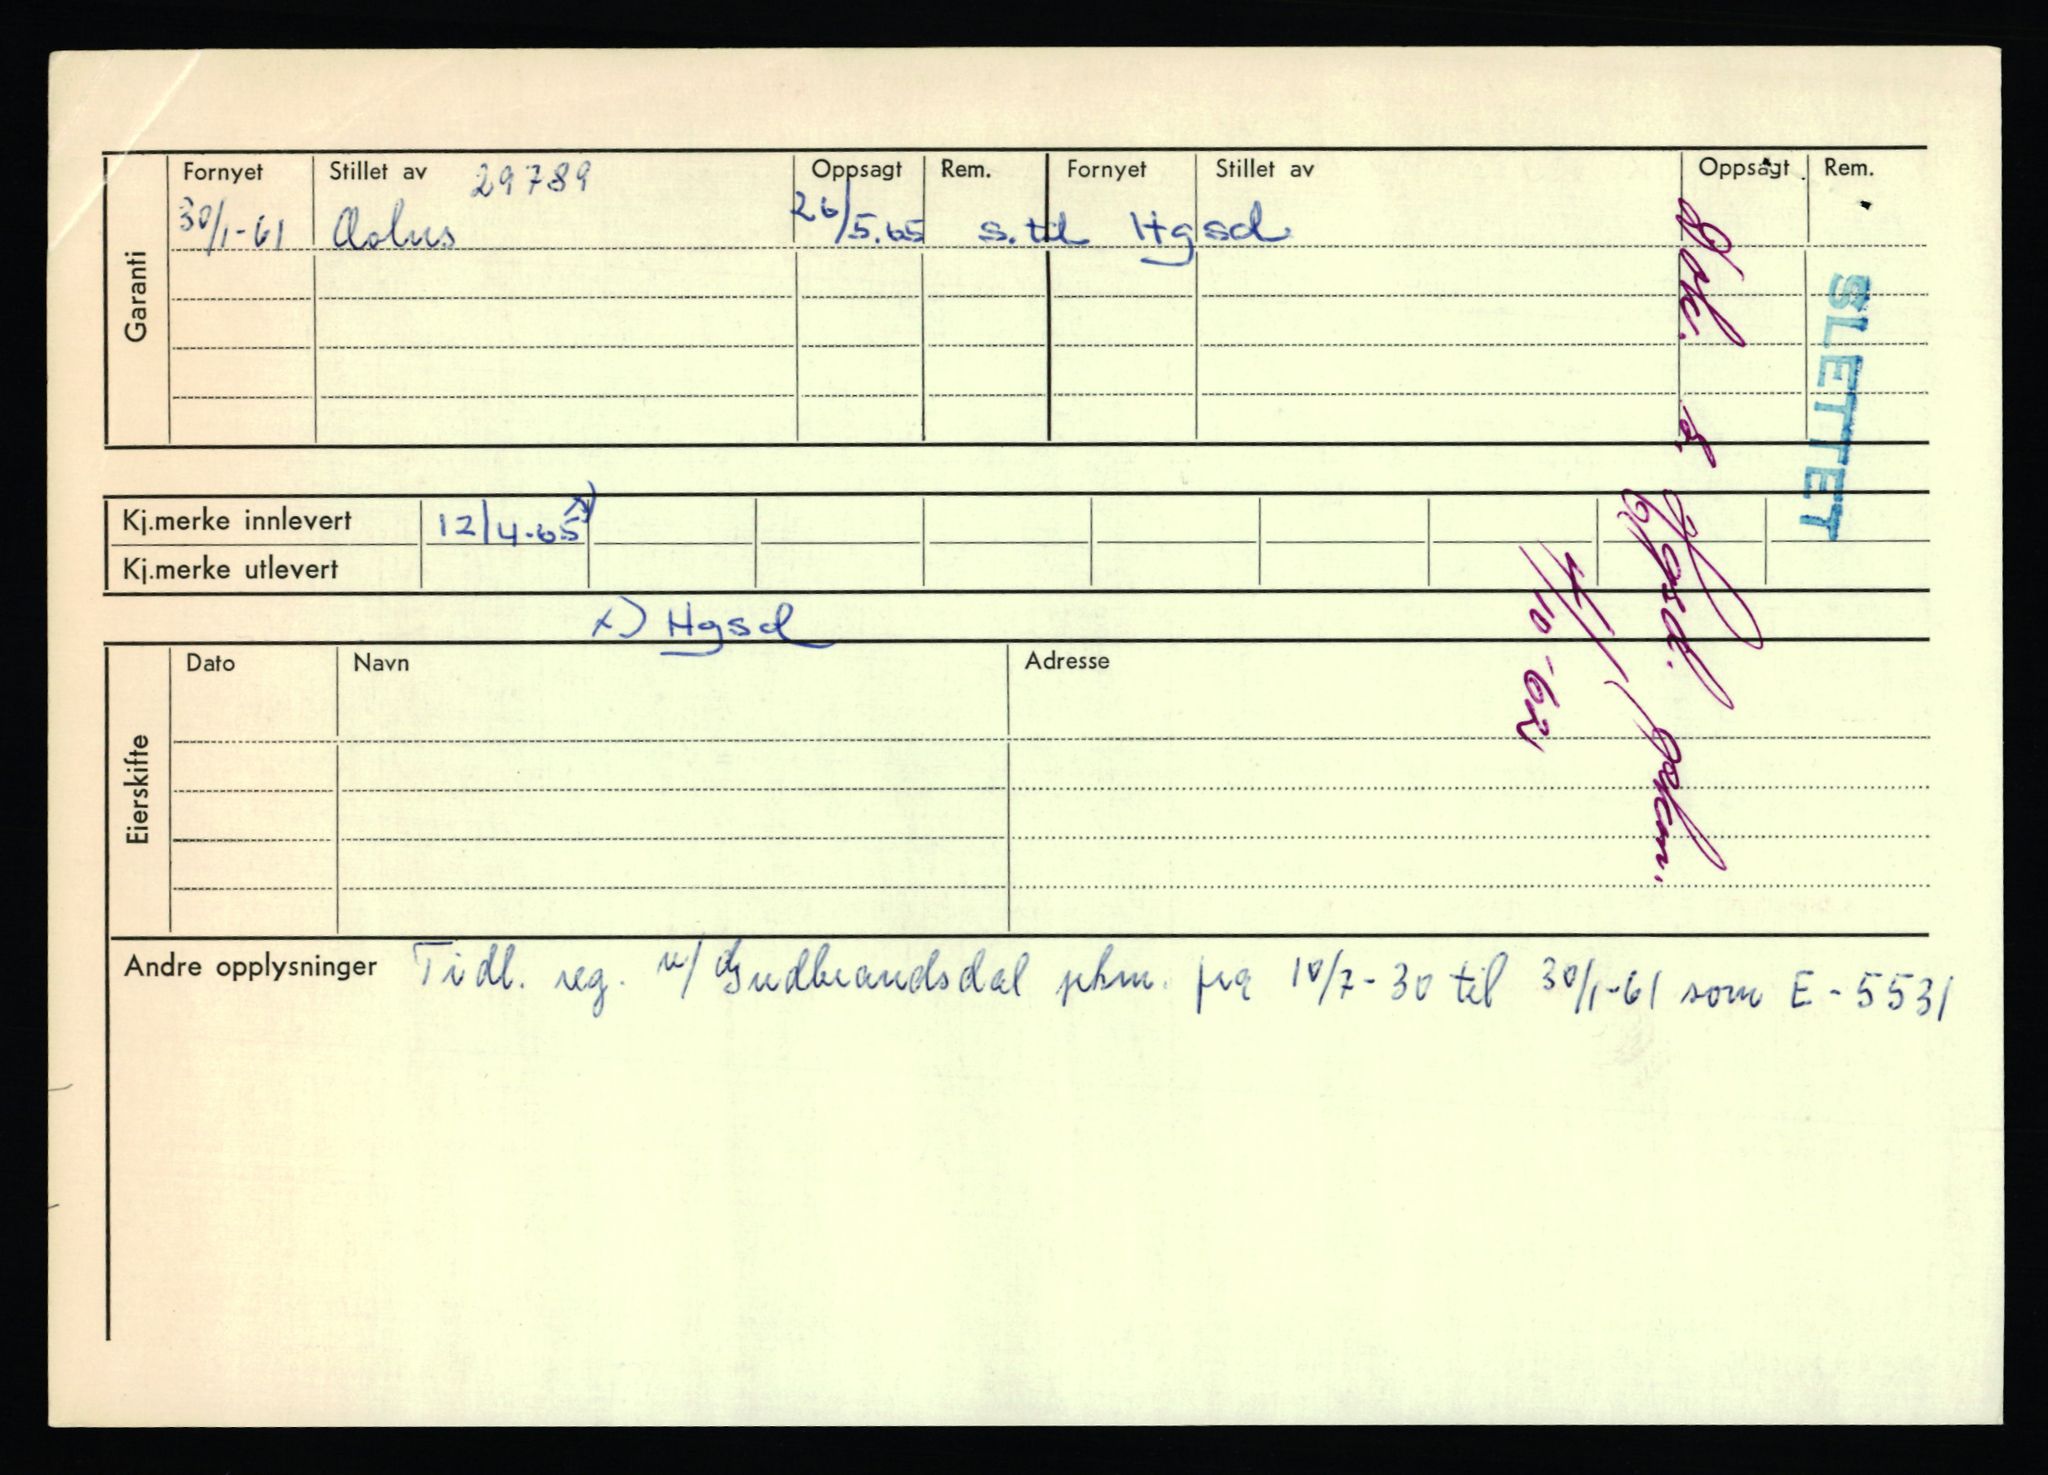 Garanti
Fornyet Stillet av 29789 Oppsagt Rem. Fornyet Stillet av Oppsagt Rem.
30/1-61 Aolus 26/5.65 s.td Hgsd
SLETTET
Kj.merke innlevert 12/4-65 x)
Kj.merke utlevert
x) Hgsd
Eierskifte
Dato Navn Adresse
Hgsd.
4/10-62
Andre opplysninger Tidl. reg. v/ Gudbrandsdal pkm. fra 10/7-30 til 30/1-61 som E-5531